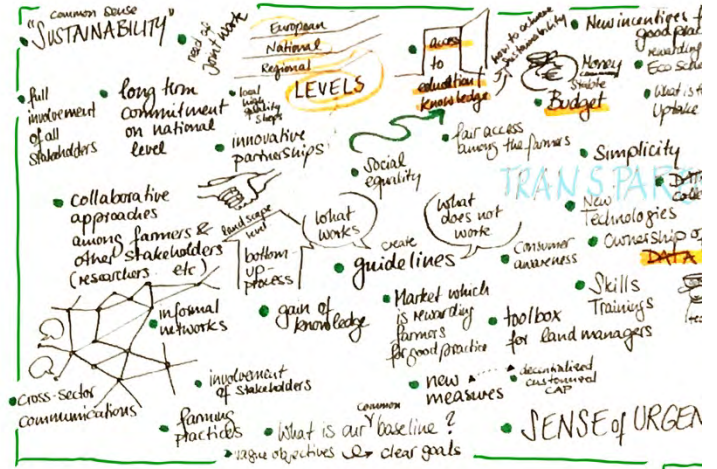 common sense
"SUSTAINABILITY"
need of
Joint Work
European
National
Regional
LEVELS
access
to
education/
knowledge
how to achieve
sustainability
Money
Stable
Budget
New incentives f
good prac
rewarding
Eco Sche
What is t
Uptake
full
involvement
of all
stakeholders
long term
commitment
on national
level
local
high
quality
shops
innovative
partnerships
Social
equality
fair access
among the farmers
Simplicity
TRANSPAR
DATA
Colle
New
Technologies
Ownership of
DATA
collaborative
approaches
among farmers &
other stakeholders
(researchers etc)
landscape
level
bottom-
up-
process
What
works
What
does not
work
create
guidelines
Consumer
awareness
Skills
Trainings
informal
networks
gain of
knowledge
Market which
is rewarding
farmers
for good practice
toolbox
for land managers
cross-Sector
communications
involvement
of stakeholders
new
measures
decentralized
customized
CAP
farming
practices
What is our common baseline?
vague objectives
clear goals
SENSE of URGEN